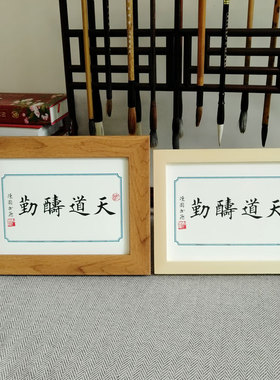 天道醻勤
天道醻勤